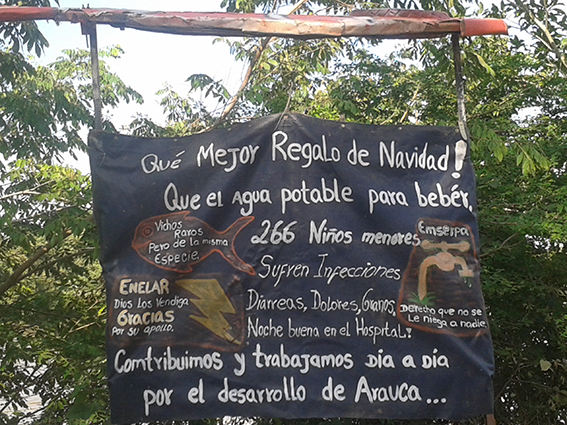 Qué Mejor Regalo de Navidad!
Que el Agua potable para bebér,
Vichos
Raros
Pero de la misma
Especie.
266 Niños menores
Sufren Infecciones
Diarreas, Dolores, Granos,
Noche buena en el Hospital!
Emserpa
Derecho que no se
Le niega a nadie.
ENELAR
Dios Los Vendiga
Gracias
Por su apollo.
Comtribuimos y trabajamos Dia a Dia
por el desarrollo de Arauca...